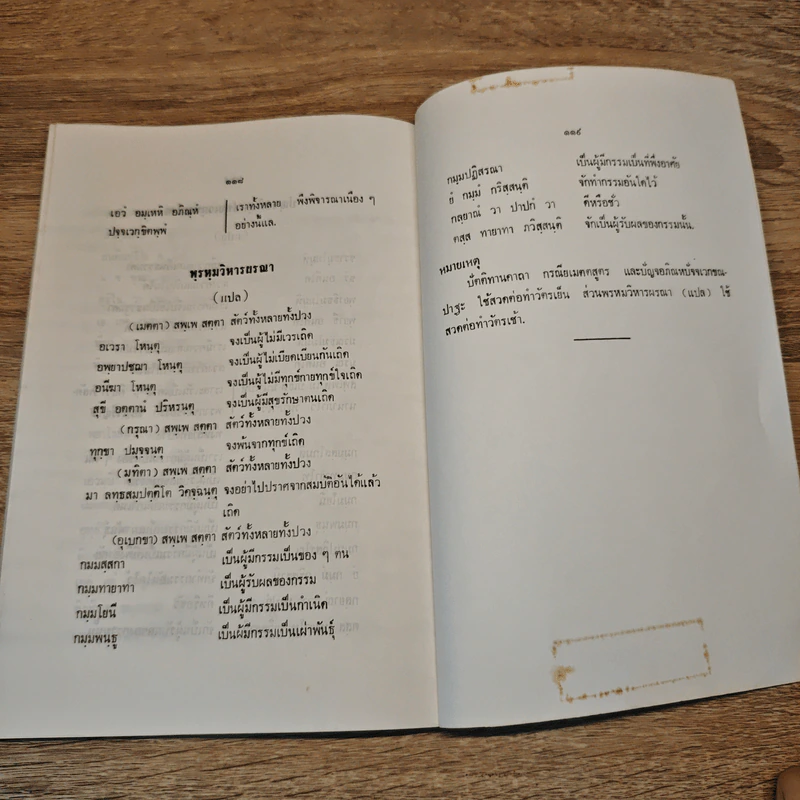 ๑๑๘
เอวํ อมฺเหหิ อภิณฺหํ เราทั้งหลาย พึงพิจารณาเนือง ๆ
ปจฺจเวกฺขิตพฺพํ อย่างนี้แล.
พฺรหฺมวิหารผรณา
(แปล)
(เมตตา) สพฺเพ สตฺตา สัตว์ทั้งหลายทั้งปวง
อเวรา โหนฺตุ จงเป็นผู้ไม่มีเวรเถิด
อพฺยาปชฺฌา โหนฺตุ จงเป็นผู้ไม่เบียดเบียนกันเถิด
อนีฆา โหนฺตุ จงเป็นผู้ไม่มีทุกข์กายทุกข์ใจเถิด
สุขี อตฺตานํ ปริหรนฺตุ จงเป็นผู้มีสุขรักษาตนเถิด
(กรุณา) สพฺเพ สตฺตา สัตว์ทั้งหลายทั้งปวง
ทุกฺขา ปมุจฺจนฺตุ จงพ้นจากทุกข์เถิด
(มุทิตา) สพฺเพ สตฺตา สัตว์ทั้งหลายทั้งปวง
มา ลทฺธสมฺปตฺติโต วิคจฺฉนฺตุ จงอย่าไปปราศจากสมบัติอันได้แล้ว
เถิด
(อุเบกขา) สพฺเพ สตฺตา สัตว์ทั้งหลายทั้งปวง
กมฺมสฺสกา เป็นผู้มีกรรมเป็นของ ๆ ตน
กมฺมทายาทา เป็นผู้รับผลของกรรม
กมฺมโยนี เป็นผู้มีกรรมเป็นกำเนิด
กมฺมพนฺธู เป็นผู้มีกรรมเป็นเผ่าพันธุ์
๑๑๙
กมฺมปฏิสรณา เป็นผู้มีกรรมเป็นที่พึ่งอาศัย
ยํ กมฺมํ กริสฺสนฺติ จักทำกรรมอันใดไว้
กลฺยาณํ วา ปาปกํ วา ดีหรือชั่ว
ตสฺส ทายาทา ภวิสฺสนฺติ จักเป็นผู้รับผลของกรรมนั้น.
หมายเหตุ
ปัตติทานคาถา กรณียเมตตสูตร และปัญจอภิณหปัจจเวกขณ-
ปาฐะ ใช้สวดต่อทำวัตรเย็น ส่วนพรหมวิหารผรณา (แปล) ใช้
สวดต่อทำวัตรเช้า.